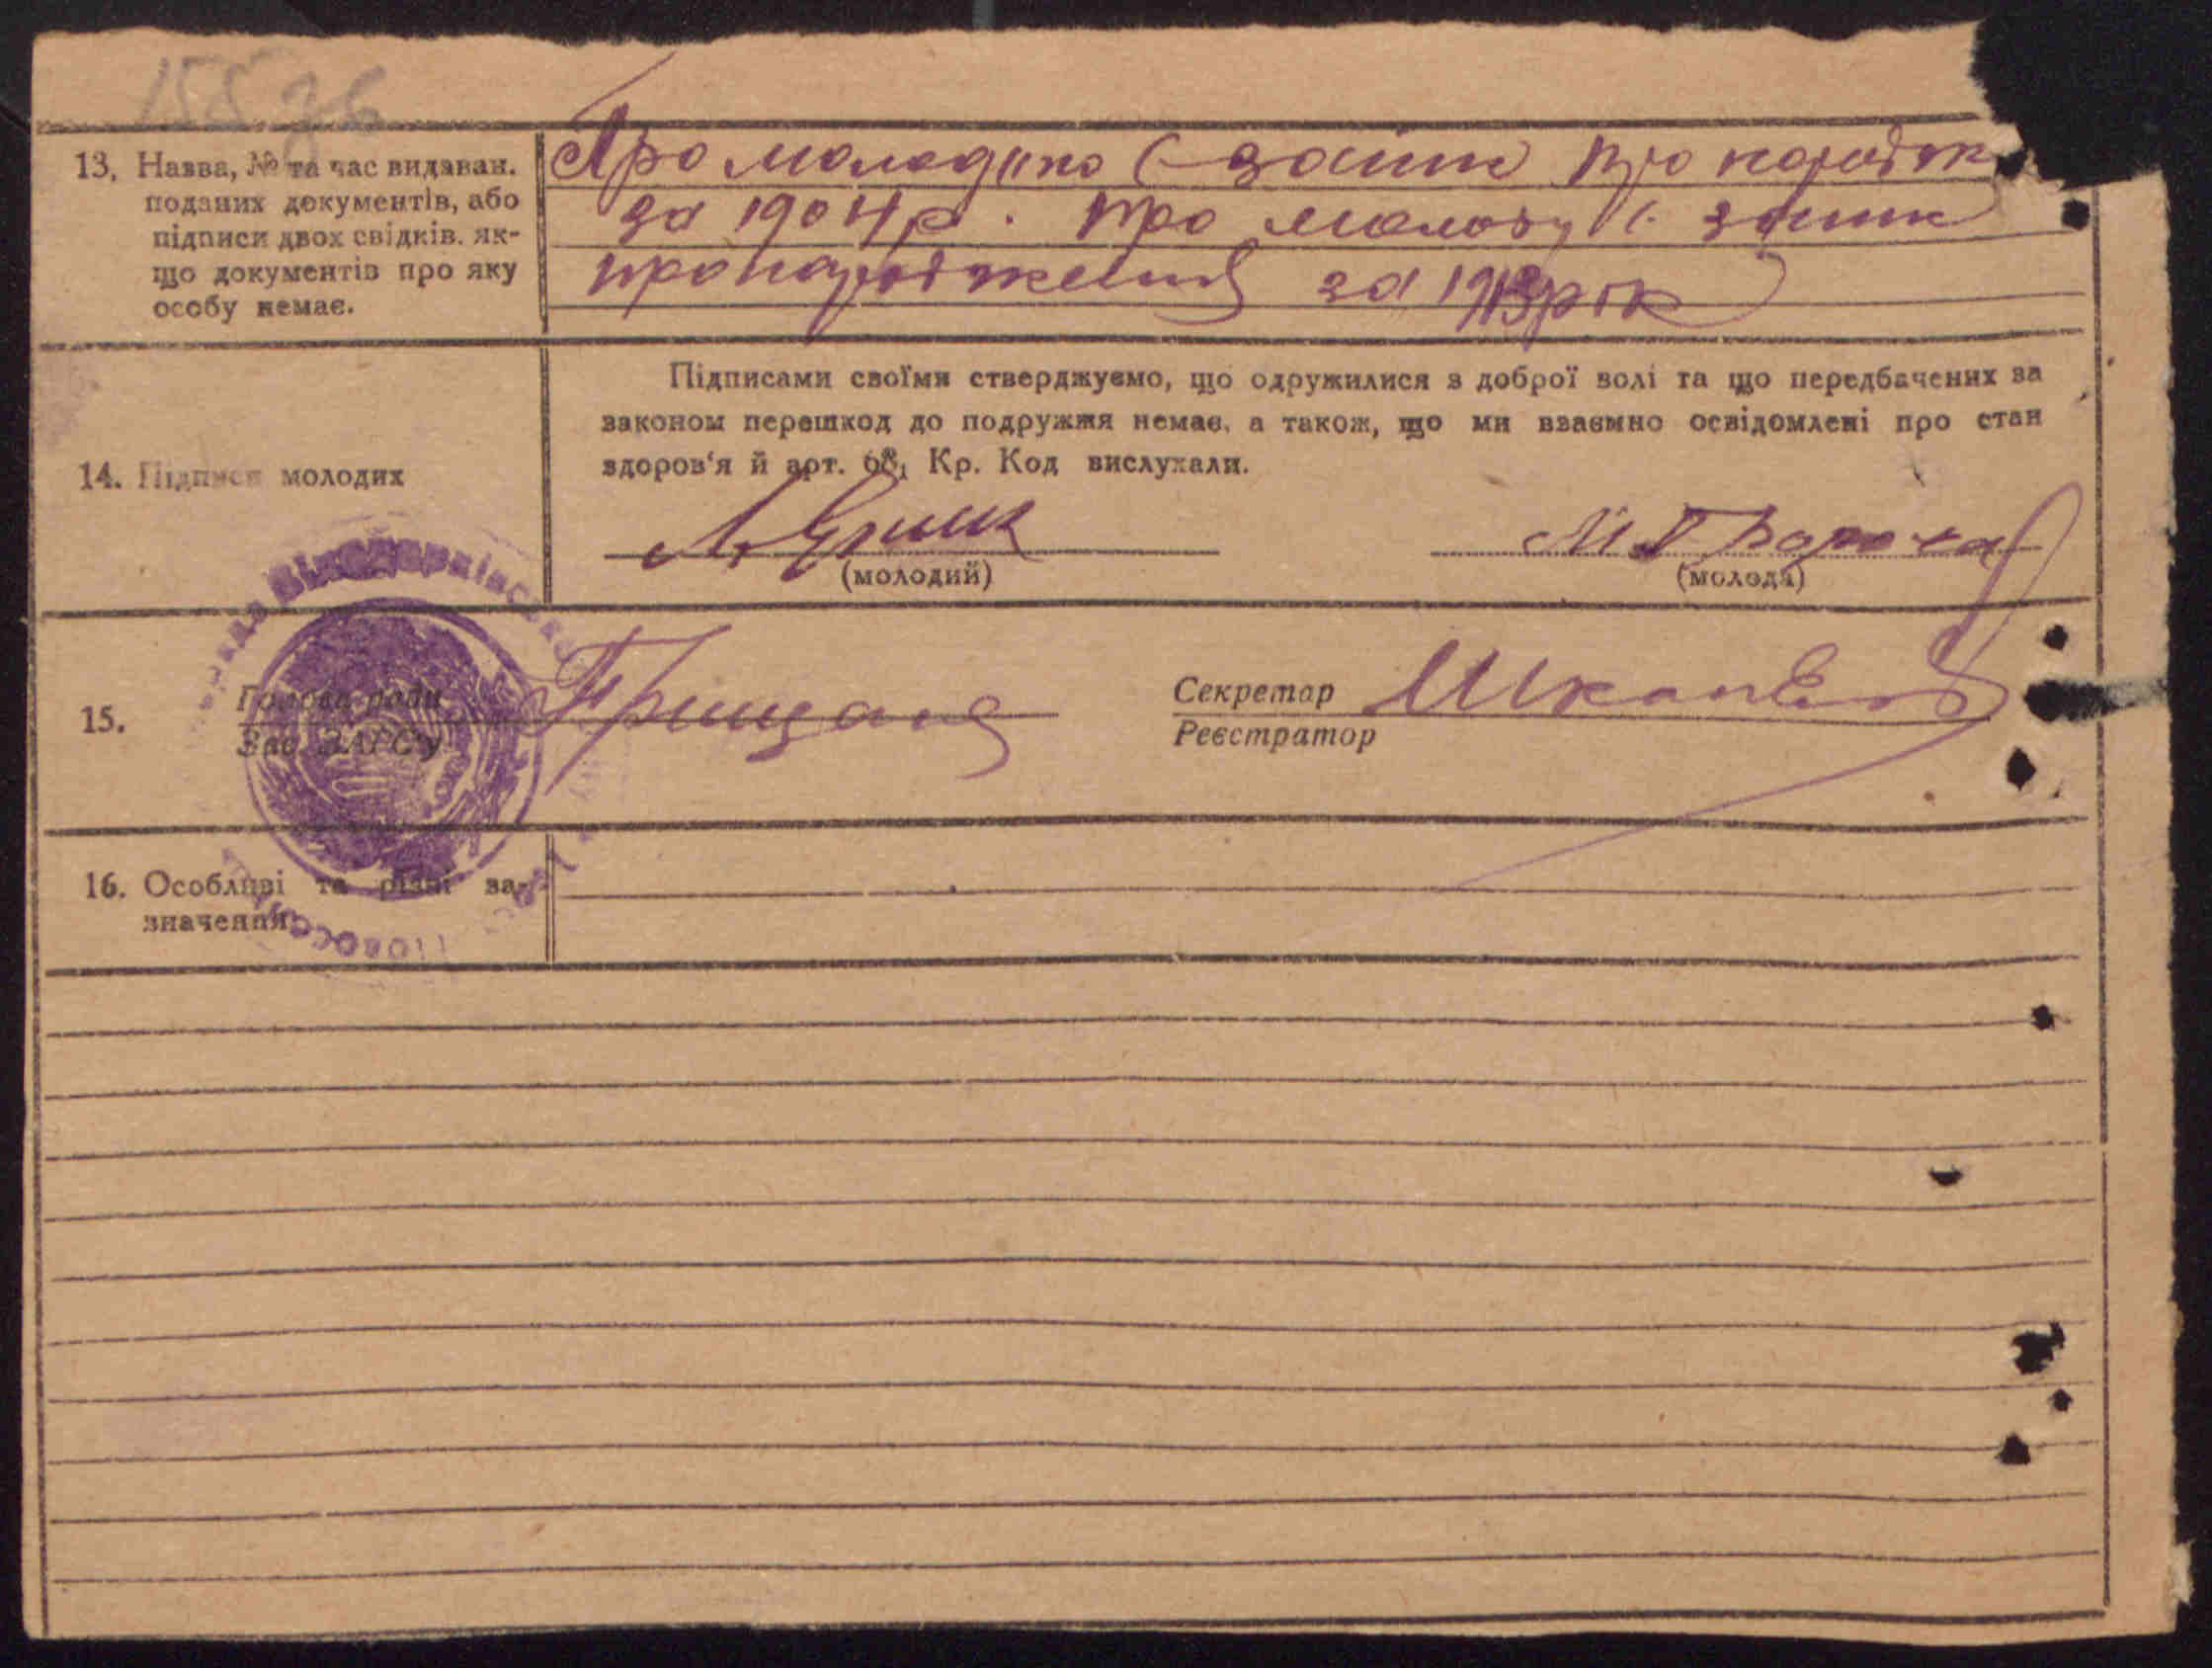 13. Назва, № та час видаван.
поданих документів, або
підписи двох свідків. як-
що документів про яку
особу немає.
Про молодого є запис про народж
за 1904 р. Про молоду є запис
про народження за 1913 рік
Підписами своїми стверджуємо, що одружилися з доброї волі та що передбачених за
законом перешкод до подружжя немає, а також, що ми взаємно освідомлені про стан
здоров'я й арт. 68₁ Кр. Код вислухали.
14. Підписи молодих
(молодий)
(молода)
15.
Голова ради
Зав. ЗАГС'у
Грищенко
Секретар
Реєстратор
16. Особливі та різні за-
значення